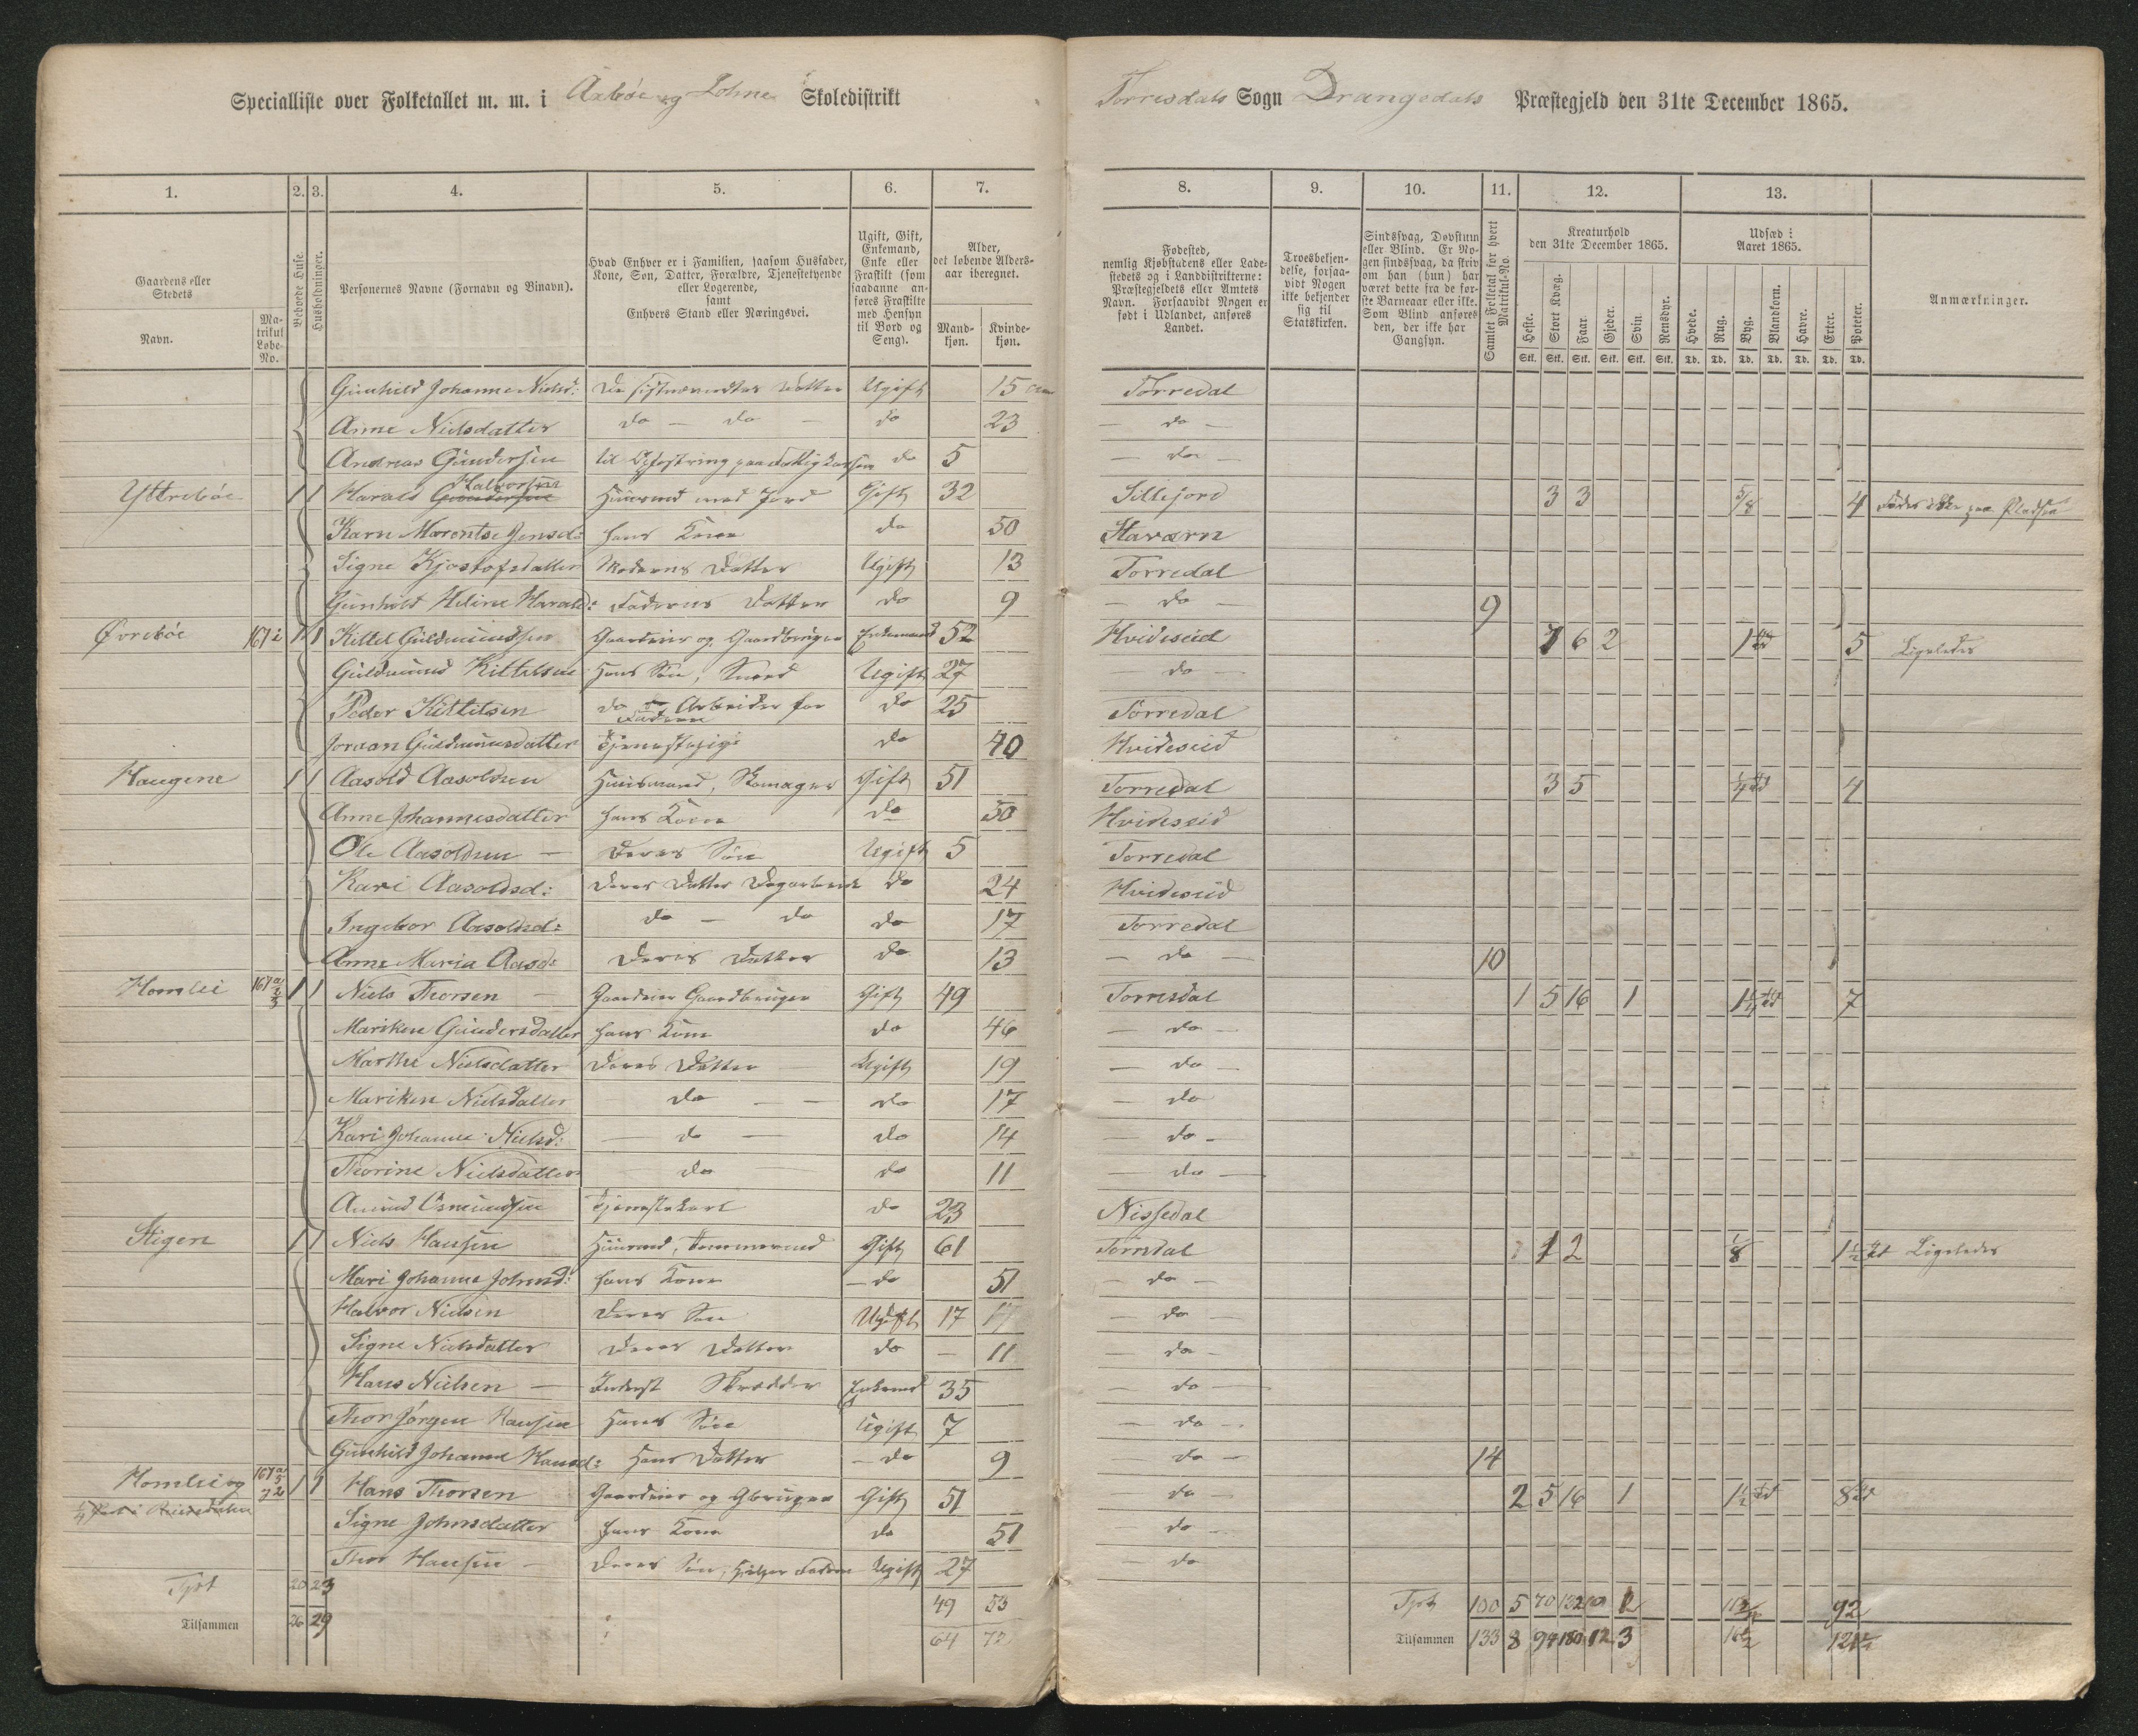 Specialliste over Folketallet m. m. i Aabøe og Lohne Skoledistrikt Torresdals Sogn Drangedals Præstegjeld den 31te December 1865.
1. 2. 3. 4. 5. 6. 7. 8. 9. 10. 11. 12. 13.
Gaardens eller Stedets
Navn.
Matrikul Løbe-No.
Beboede Huse.
Husholdninger.
Personernes Navne (Fornavn og Binavn).
Hvad Enhver er i Familien, saasom Husfader, Kone, Søn, Datter, Forældre, Tjenestetyende eller Logerende, samt Enhvers Stand eller Næringsvei.
Ugift, Gift, Enkemand, Enke eller Fraskilt (som saadanne anføres Fraskilte med Hensyn til Bord og Seng).
Alder, det løbende Alders-aar iberegnet.
Mandkjøn. Kvindekjøn.
Fødested, nemlig Kjøbstadens eller Ladestedets og i Landdistrikterne: Præstegjeldets eller Amtets Navn. Forsaavidt Nogen er født i Udlandet, anføres Landet.
Troesbekjendelse, forsaavidt Nogen ikke bekjender sig til Statskirken.
Sindssvag, Døvstum eller Blind. Er Nogen sindssvag, da skriv om han (hun) har været dette fra de første Barneaar eller ikke. Som Blind anføres den, der ikke har Gangsyn.
Samlet Folketal for hvert Matrikul-No.
Kreaturhold den 31te December 1865.
Heste. Stort Kvæg. Faar. Gjeder. Svin. Rensdyr.
Stk. Stk. Stk. Stk. Stk. Stk.
Udsæd i Aaret 1865.
Hvede. Rug. Byg. Blandkorn. Havre. Erter. Poteter.
Td. Td. Td. Td. Td. Td. Td.
Anmærkninger.
Gunhild Johanne Nielsd: De sidstnævndtes Datter Ugift 15 Torredal
Anne Nielsdatter do - do - do 23 - do -
Andreas Gundersen do 5 - do -
Yttrebøe 1 1 Harald Halvorsen Huusmd med Jord Gift 32 Sillejord 3 3 5/8 4
Karn Marentse Jensd: hans Kone do 50 Staværn
Signe Kjostofsdatter Moderens Datter Ugift 13 Torredal
Gunhild Heline Harald: Faderens Datter do 9 - do - 9
Øvrebøe 167i 1 1 Kittel Guldmundsen Gaardeier og Gaardbruger Enkemand 52 Hvideseid 7 6 2 1 5 Ligeledes
Guldmund Kittelsen Hans Søn, Smed Ugift 27 - do -
Peder Kittilsen do Arbeider for Faderen do 25 Torredal
Joraan Guldmunsdatter Tjenestepige do 40 Hvideseid
Haugene 1 1 Aasold Aasoldsen Huusmand, Skomager Gift 51 Torredal 3 5 1/4 4
Anne Johannesdatter hans Kone do 50 Hvideseid
Ole Aasoldsen - Deres Søn Ugift 5 Torredal
Kari Aasoldsd: Deres Datter do 24 Hvideseid
Ingebor Aasoldsd: do - do do 17 Torredal
Anne Maria Aasd: Deres Datter do 13 - do - 10
Homlei 167 1 1 Niels Thorsen - Gaardeier Gaardbruger Gift 49 Torresdal 1 5 16 1 7
Mariken Gundersdatter hans Kone do 46 - do -
Marthe Nielsdatter Deres Datter Ugift 19 - do -
Mariken Nielsdatter do - - do 17 - do
Kari Johanne Nielsd: - do - do 14 - do -
Thorine Nielsdatter do do 11 - do
Amund Osmundsen Tjenestekarl do 23 Nissedal
Stigen 1 1 Niels Hansen Huusmd, Tømmermd Gift 61 Torredal 1 2 1/8 1 1/2 Td Ligeledes
Mari Johanne Johnsd: hans Kone - do 51 - do -
Halvor Nielsen Deres Søn Ugift 17 17 - do -
Signe Nielsdatter Deres Datter do - 11 - do -
Hans Nielsen - Inderst Skrædder Enkemd 35 - do -
Thor Jørgen Hansen Hans Søn Ugift 7 - do -
Gunhild Johanne Hansd: Hans Datter - do 9 - do - 14
Homlei og 167 1 1 Hans Thorsen Gaardeier og Gbruger Gift 51 do - 2 5 16 1 1 1/2 8
Signe Johnsdatter hans Kone do 51 do -
Thor Hansen - Deres Søn, hjelper Faderen Ugift 27 - do
Tpt 20 23 49 53 Tpt 100 5 70 132 10 2 92
Tilsammen 26 29 64 72 Tilsammen 133 8 94 180 12 3 121 1/2